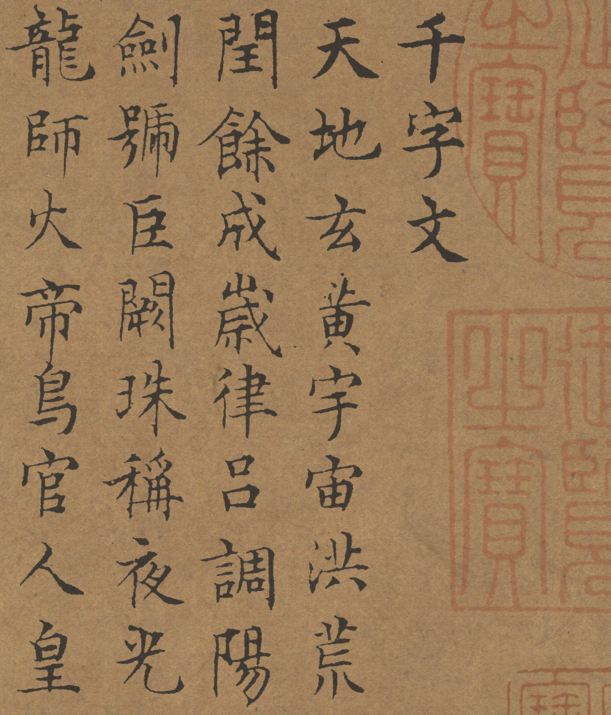 千字文
天地玄黃宇宙洪荒
閏餘成歲律呂調陽
劍號巨闕珠稱夜光
龍師火帝鳥官人皇